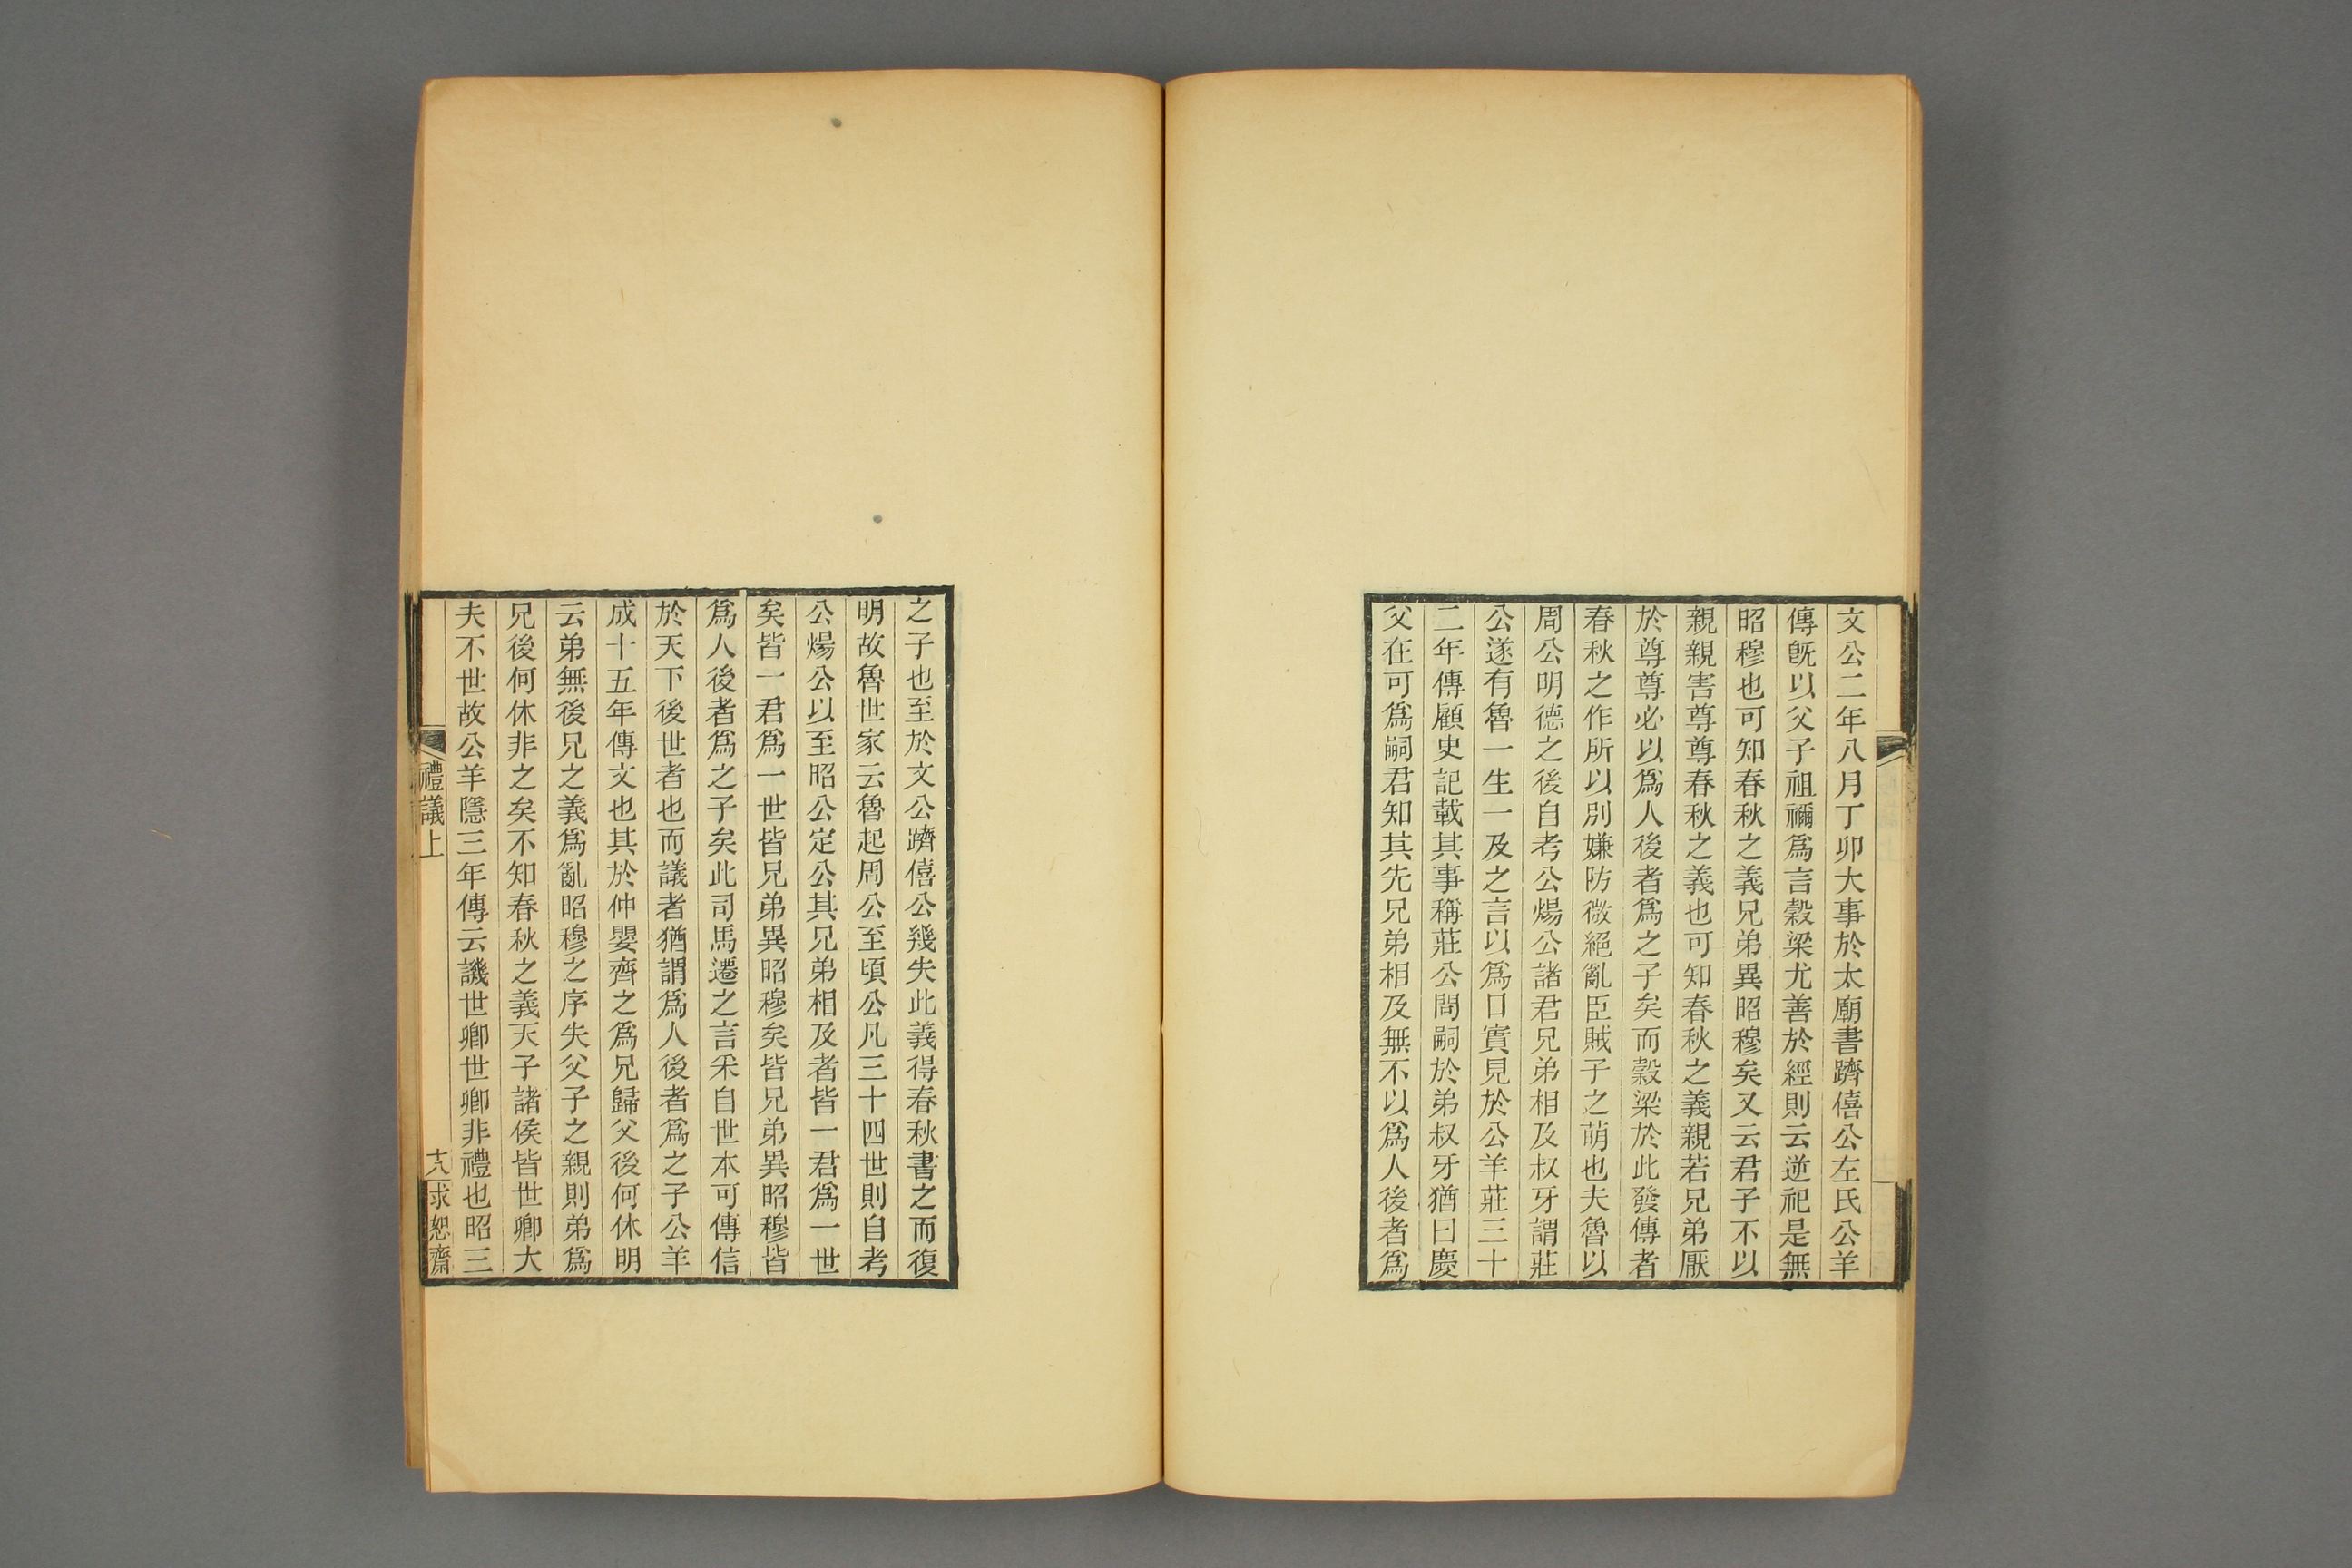 文公二年八月丁卯大事於太廟書躋僖公左氏公羊
傳旣以父子祖禰爲言穀梁尤善於經則云逆祀是無
昭穆也可知春秋之義兄弟異昭穆矣又云君子不以
親親害尊尊春秋之義也可知春秋之義親若兄弟厭
於尊尊必以爲人後者爲之子矣而穀梁於此發傳者
春秋之作所以別嫌防微絕亂臣賊子之萌也夫魯以
周公明德之後自考公煬公諸君兄弟相及叔牙謂莊
公遂有魯一生一及之言以爲口實見於公羊莊三十
二年傳顧史記載其事稱莊公問嗣於弟叔牙猶曰慶
父在可爲嗣君知其先兄弟相及無不以爲人後者爲
之子也至於文公躋僖公幾失此義得春秋書之而復
明故魯世家云魯起周公至頃公凡三十四世則自考
公煬公以至昭公定公其兄弟相及者皆一君爲一世
矣皆一君爲一世皆兄弟異昭穆矣皆兄弟異昭穆皆
爲人後者爲之子矣此司馬遷之言采自世本可傳信
於天下後世者也而議者猶謂爲人後者爲之子公羊
成十五年傳文也其於仲嬰齊之爲兄歸父後何休明
云弟無後兄之義爲亂昭穆之序失父子之親則弟爲
兄後何休非之矣不知春秋之義天子諸侯皆世卿大
夫不世故公羊隱三年傳云譏世卿世卿非禮也昭三
禮議上
十八
求恕齋